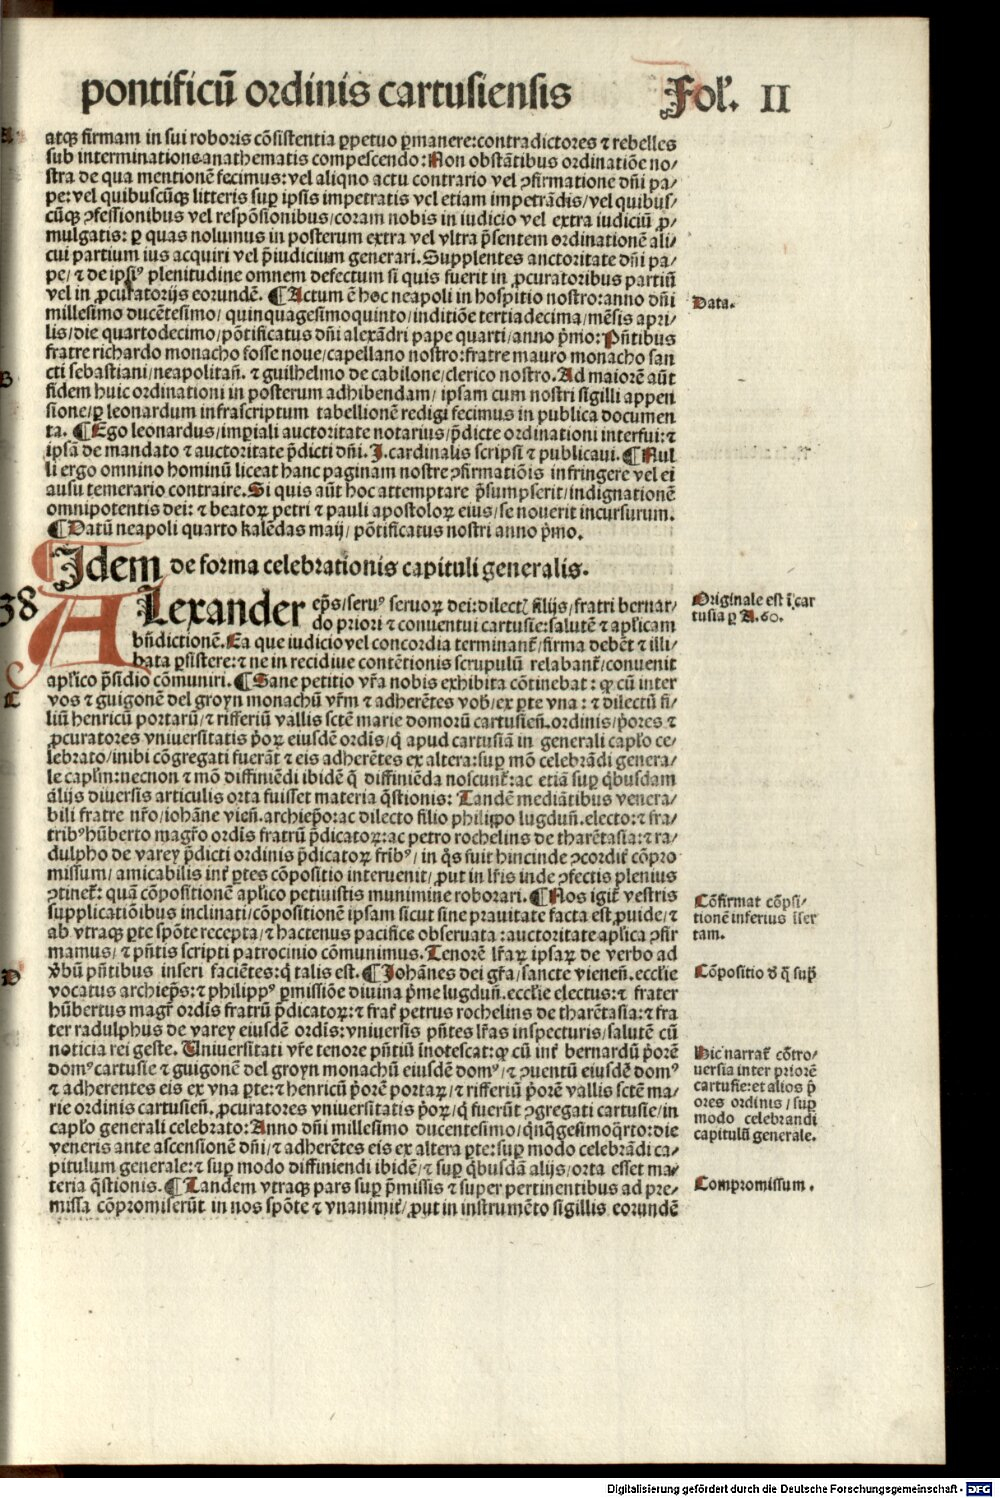 pontificū ordinis cartusiensis Fol'. II
atqꝫ firmam in sui roboris cōsistentia ꝑpetuo ꝑmanere:contradictores ⁊ rebelles
sub interminatione anathematis compescendo: Non obstātibus ordinatiōe no/
stra de qua mentionē fecimus:vel aliqno actu contrario vel ꝯfirmatione dñi pa/
pe:vel quibuscūqꝫ litteris suꝑ ipsis impetratis vel etiam impetrādis/vel quibus/
cūqꝫ ꝯfessionibus vel respōsionibus/coram nobis in iudicio vel extra iudiciū ꝓ/
mulgatis: ꝑ quas nolumus in posterum extra vel vltra p̄sentem ordinationē ali/
cui partium ius acquiri vel p̄iudicium generari. Supplentes auctoritate dñi pa/
pe/⁊ de ipsiꝰ plenitudine omnem defectum si quis fuerit in ꝓcuratoribus partiū
vel in ꝓcuratorijs eorundē. ¶Actum ē hoc neapoli in hospitio nostro:anno dñi
Data.
millesimo ducētesimo/ quinquagesimoquinto/inditiōe tertiadecima/mēsis apri/
lis/die quartodecimo/pōtificatus dñi alexādri pape quarti/anno p̄mo:Pñtibus
fratre richardo monacho fosse noue/capellano nostro:fratre mauro monacho san
cti sebastiani/neapolitañ. ⁊ guilhelmo de cabilone/clerico nostro. Ad maiorē aūt
B
fidem huic ordinationi in posterum adhibendam/ ipsam cum nostri sigilli appen
sione/ꝑ leonardum infrascriptum tabellionē redigi fecimus in publica documen
ta. ¶Ego leonardus/imꝑiali auctoritate notarius/p̄dicte ordinationi interfui:⁊
ipsā de mandato ⁊ auctoritate p̄dicti dñi. J. cardinalis scripsi ⁊ publicaui. ¶Nul
li ergo omnino hominū liceat hanc paginam nostre ꝯfirmatiōis infringere vel ei
ausu temerario contraire. Si quis aūt hoc attemptare p̄sumpserit/indignationē
omnipotentis dei: ⁊ beatoꝝ petri ⁊ pauli apostoloꝝ eius/se nouerit incursurum.
¶Datū neapoli quarto kalēdas maij/ pōtificatus nostri anno p̄mo.
Idem de forma celebrationis capituli generalis.
38
ALexander ep̄s/seruꝰ seruoꝝ dei:dilectꝭ filijs/fratri bernar/
Originale est ī car
do priori ⁊ conuentui cartusie:salutē ⁊ apl'icam
tusia ꝑ A.60.
bñdictionē. Ea que iudicio vel concordia terminant᷑/firma debēt ⁊ illi/
bata ꝑsistere:⁊ ne in recidiue contētionis scrupulū relabant᷑/conuenit
apl'ico p̄sidio cōmuniri. ¶Sane petitio vr̄a nobis exhibita cōtinebat: ꝙ cū inter
C
vos ⁊ guigonē del groyn monachū vr̄m ⁊ adherētes vob̄/ex ꝑte vna: ⁊ dilectū fi/
liū henricū portarū/⁊ rifferiū vallis sctē marie domorū cartusieñ.ordinis/p̄ores ⁊
ꝓcuratores vniuersitatis p̄oꝝ eiusdē ordis/q̄ apud cartusiā in generali capl'o ce/
lebrato/inibi cōgregati fuerāt ⁊ eis adherētes ex altera:suꝑ mō celebrādi genera/
le capl'm:necnon ⁊ mō diffiniēdi ibidē q̄ diffiniēda noscunt᷑:ac etiā suꝑ q̄busdam
alijs diuersis articulis orta fuisset materia q̄stionis: Tandē mediātibus venera/
bili fratre nr̄o/iohāne vieñ.archiep̄o:ac dilecto filio philippo lugduñ.electo:⁊ fra/
tribꝰ hūberto magr̄o ordis fratrū p̄dicatoꝝ:ac petro rochelins de tharētasia:⁊ ra/
dulpho de varey p̄dicti ordinis p̄dicatoꝝ fribꝰ/ in q̄s fuit hincinde ꝯcordit᷑ cōpro
missum/ amicabilis int᷑ ꝑtes cōpositio interuenit/ ꝓut in lr̄is inde ꝯfectis plenius
ꝯtinet᷑: quā cōpositionē apl'ico petiuistis munimine roborari. ¶Nos igit᷑ vestris
Cōfirmat cōpsi/
supplicatiōibus inclinati/cōpositionē ipsam sicut sine prauitate facta est ꝓuide/⁊
tionē inferius īser
ab vtraqꝫ ꝑte spōte recepta/⁊ hactenus pacifice obseruata :auctoritate apl'ica ꝯfir
tam.
mamus/⁊ pñtis scripti patrocinio cōmunimus. Tenorē lr̄aꝝ ipsaꝝ de verbo ad
D
v̄bū pñtibus inseri faciētes:q̄ talis est. ¶Johānes dei gr̄a/sancte vieneñ.eccl'ie
Cōpositio d̄ q̄ suꝑ
vocatus archiep̄s:⁊ philippꝰ ꝑmissiōe diuina p̄me lugduñ.eccl'ie electus:⁊ frater
hūbertus magr̄ ordis fratrū p̄dicatoꝝ:⁊ frat᷑ petrus rochelins de tharētasia:⁊ fra
ter radulphus de varey eiusdē ordis:vniuersis pñtes lr̄as inspecturis/salutē cū
noticia rei geste. Uniuersitati vr̄e tenore pñtiū īnotescat:ꝙ cū int᷑ bernardū p̄orē
Hic narrat᷑ cōtro/
domꝰ cartusie ⁊ guigonē del groyn monachū eiusdē domꝰ/⁊ ꝯuentū eiusdē domꝰ
uersia inter priorē
⁊ adherentes eis ex vna ꝑte:⁊ henricū p̄orē portaꝝ/⁊ rifferiū p̄orē vallis sctē ma/
cartusie:et alios p̄
rie ordinis cartusieñ. ꝓcuratores vniuersitatis p̄oꝝ/q̄ fuerūt ꝯgregati cartusie/in
ores ordinis/suꝑ
capl'o generali celebrato: Anno dñi millesimo ducentesimo/qn̄qgesimoqrto:die
modo celebrandi
veneris ante ascensionē dñi/⁊ adherētes eis ex altera ꝑte:suꝑ modo celebrādi ca/
capitulū generale.
pitulum generale:⁊ suꝑ modo diffiniendi ibidē/⁊ suꝑ q̄busdā alijs/orta esset ma/
teria q̄stionis. ¶Tandem vtraqꝫ pars suꝑ p̄missis ⁊ super pertinentibus ad pre/
Compromissum.
missa cōpromiserūt in nos spōte ⁊ vnanimit᷑/ꝓut in instrumēto sigillis eorundē
Digitalisierung gefördert durch die Deutsche Forschungsgemeinschaft - DFG